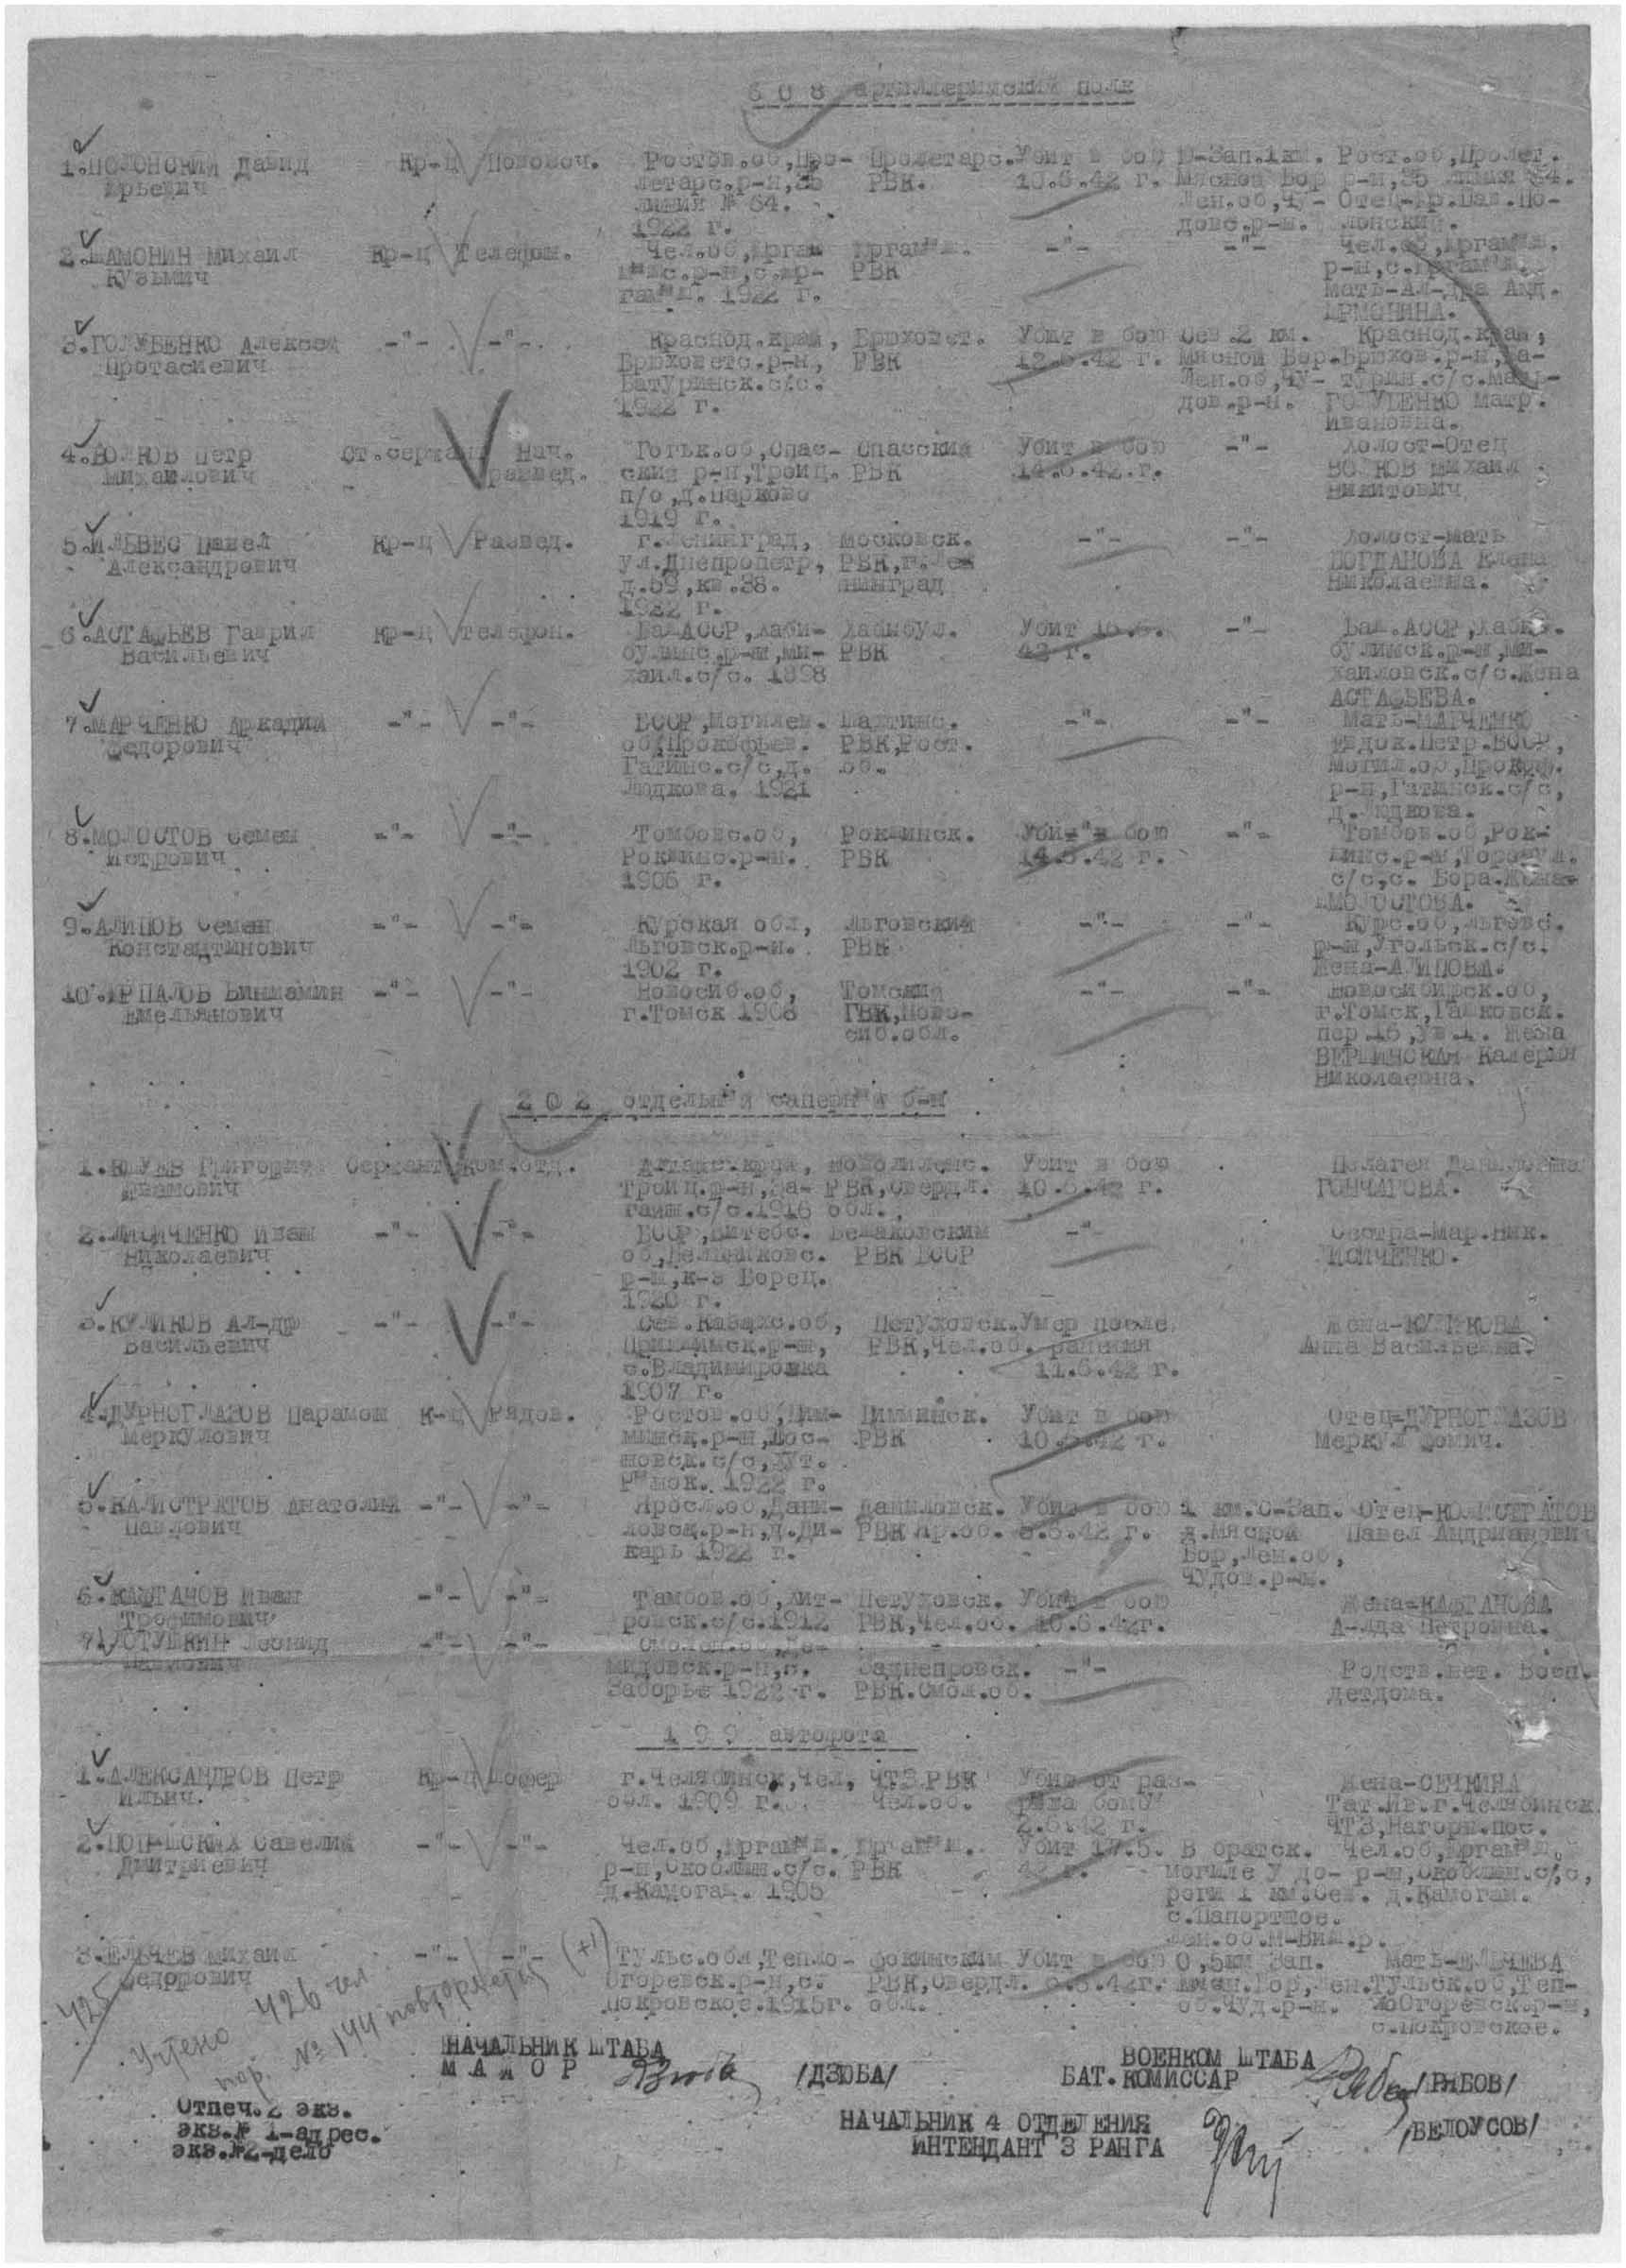 608 артиллерийский полк
1.ПОЛОНСКИЙ Давид Кр-ц Повозоч. Ростов.об,Про- Пролетарс. Убит в бою Ю-Зап.1км. Рост.об,Пролет.
Юрьевич летарс.р-н,35 РВК. 10.6.42 г. Мясной Бор р-н,35 линия 64.
линия № 64. Лен.об,Чу- Отец-Юр.Дав.По-
1922 г. довс.р-н. лонский.
2.ШАМОНИН Михаил Кр-ц Телефон. Чел.об,Юргам Юргамыш. -"- -"- Чел.об,Юргамыш.
Кузьмич ышс.р-н,с.Юр- РВК р-н,с.Юргамыш.
гамыш. 1922 г. Мать-Ал-дра Анд.
3.ГОЛУБЕНКО Алексей -"- -"- Краснод.край, Брюховет. Убит в бою Сев.2 км. Краснод.край,
Протасиевич Брюховетс.р-н, РВК 12.6.42 г. Мясной Бор. Брюхов.р-н,Ба-
Батуринск.с/с. Лен.об,Чу- турин.с/с.Мать-
1922 г. дов.р-н. ГОЛУБЕНКО Матр.
Ивановна.
4.ВОЛКОВ Петр Ст.сержант Нач. Горьк.об,Спас- Спасский Убит в бою -"- Холост-Отец
Михаилович развед. ский р-н,Троиц. РВК 14.6.42.г. ВОЛКОВ Михаил
п/о,д.Марково Никитович
1919 г.
5.ИЛЬВЕС Павел Кр-ц Развед. г.Ленинград, Московск. -"- -"- Холост-мать
Александрович ул.Днепропетр, РВК,г.Лен БОГДАНОВА Елена
д.59,кв.38. инград Николаевна.
1922 г.
6.АСТАФЬЕВ Гаврил Кр-ц Телефон. БашАССР,Хаби- Хабибул. Убит -"- Баш.АССР,Хаби-
Васильевич булинс.р-н,Ми- РВК 42 г. булинск.р-н,Ми-
хаил.с/с. 1898 хаиловск.с/с.Жена
АСТАФЬЕВА.
7.МАРЧЕНКО Аркадий -"- -"- БССР,Могилев. Шахтинс. -"- -"- Мать-МАРЧЕНКО
Федорович об,Прокофьев. РВК,Рост. Евдок.Петр.БССР,
Гатинс.с/с,д. об. Могил.об,Прокоф.
Людкова. 1921 р-н,Гатинск.с/с,
д.Людкова.
8.МОЛОСТОВ Семен -"- -"- Томбовс.об, Рокшинск. Убит в бою -"- Томбов.об,Рок-
Петрович Рокшинс.р-н. РВК 14.6.42 г. шинс.р-н,
1906 г. с/с,с. Бора.Жена-
МОЛОСТОВА.
9.АЛИПОВ Семен -"- -"- Курская обл, Льговский -"- -"- Курс.об,Льговс.
Константинович Льговск.р-н. РВК р-н,Угольск.с/с.
1902 г. Жена-АЛИПОВА.
10. Виниамин -"- -"- Новосиб.об, Томский -"- -"- Новосибирск.об,
Емельянович г.Томск 1908 ГВК,Ново- г.Томск,
сиб.обл. пер.16,кв.1. Жена
ВЕРШИНСКАЯ Калерия
Николаевна.
202 отдельный саперный б-н
1. Григорий Сержант Ком.отд. Алтайс.край, Мобилизов. Убит в бою Пелагея Даниловна
Иванович Троиц.р-н,За- РВК,Свердл. 10.6.42 г. ГОНЧАРОВА.
гайн.с/с.1916 обл.
2. Иван -"- -"- БССР,Витебс. Бешаковским -"- Сестра-Мар.Ник.
Николаевич об, РВК БССР
р-н,к-з Борец.
1920 г.
3.КУЛИКОВ Ал-др -"- -"- Сев.Казахс.об, Петуховск. Умер после Жена-КУЛИКОВА
Васильевич Приишимск.р-н, РВК,Чел.об. ранения Анна Васильевна.
с.Владимировка 11.6.42 г.
1907 г.
4.ДУРНОГЛАЗОВ Парамон К-ц Рядов. Ростов.об,Цим- Цимлянск. Убит в бою Отец-ДУРНОГЛАЗОВ
Меркулович лянск.р-н,Лос- РВК 10.6.42 г. Меркул Фомич.
новск.с/с,хут.
Рынок. 1922 г.
5.КАЛИСТРАТОВ Анатолий -"- -"- Яросл.об,Дани- Даниловск. Убит в бою 1 км.С-Зап. Отец-КОЛИСТРАТОВ
Павлович ловск.р-н,д.Ди- РВК Яр.об. 6.6.42 г. д.Мясной Павел Андрианович
карь 1922 г. Бор,Лен.об,
Чудов.р-н.
6.КАФТАНОВ Иван -"- -"- Тамбов.об,Дмит- Петуховск. Убит в бою Жена-КАФТАНОВА
Трофимович ровск.с/с.1912 РВК,Чел.об. 10.6.42г. А-лда Петровна.
7. Леонид -"- -"- Смолен.об,Де-
Павлович мидовск.р-н,д. Заднепровск. -"- Родств.нет. Восп.
Заборье 1922 г. РВК.Смол.об. детдома.
199 авторота
1.АЛЕКСАНДРОВ Петр Кр-ц Шофер г.Челябинск,Чел, ЧТЗ РВК Убит от раз- Жена-СЕЧКИНА
Ильич. обл. 1909 г. Чел.об. рыва бомбы Тат.Ив.г.Челябинск
2.6.42 г. ЧТЗ,Нагорн.пос.
2. Савелий -"- -"- Чел.об,Юргамыш. Юргамыш. Убит 17.5. В братск. Чел.об,Юргамыш.
Дмитриевич р-н,Скоблин.с/с. РВК 42 г. могиле у до- р-н,Скоблин.с/с,
д.Камоган. 1905 роги 1 км.Сев. д.Камоган.
с.Папортное.
Лен.об.М-Виш.р.
3.ЕЛЬЧЕВ Михаил -"- -"- Тульс.обл,Тепло- Фокинским Убит в бою 0,5км Зап. Мать-ЕЛЬЧЕВА
Федорович Огоревск.р-н,с. РВК,Свердл. 6.6.42г. Мясн.Бор,Лен. Тульск.об,Теп-
Покровское.1915г. обл. об.Чуд.р-н. лоОгоревск.р-н,
с.Покровское.
425
Учтено 426 чел
пор. № 144 повторяется (+1)
НАЧАЛЬНИК ШТАБА ВОЕНКОМ ШТАБА
МАЙОР /ДЗЮБА/ БАТ.КОМИССАР /РЯБОВ/
Отпеч.2 экз. НАЧАЛЬНИК 4 ОТДЕЛЕНИЯ
экз.№ 1-адрес. ИНТЕНДАНТ 3 РАНГА /БЕЛОУСОВ/
экз.№2-дело